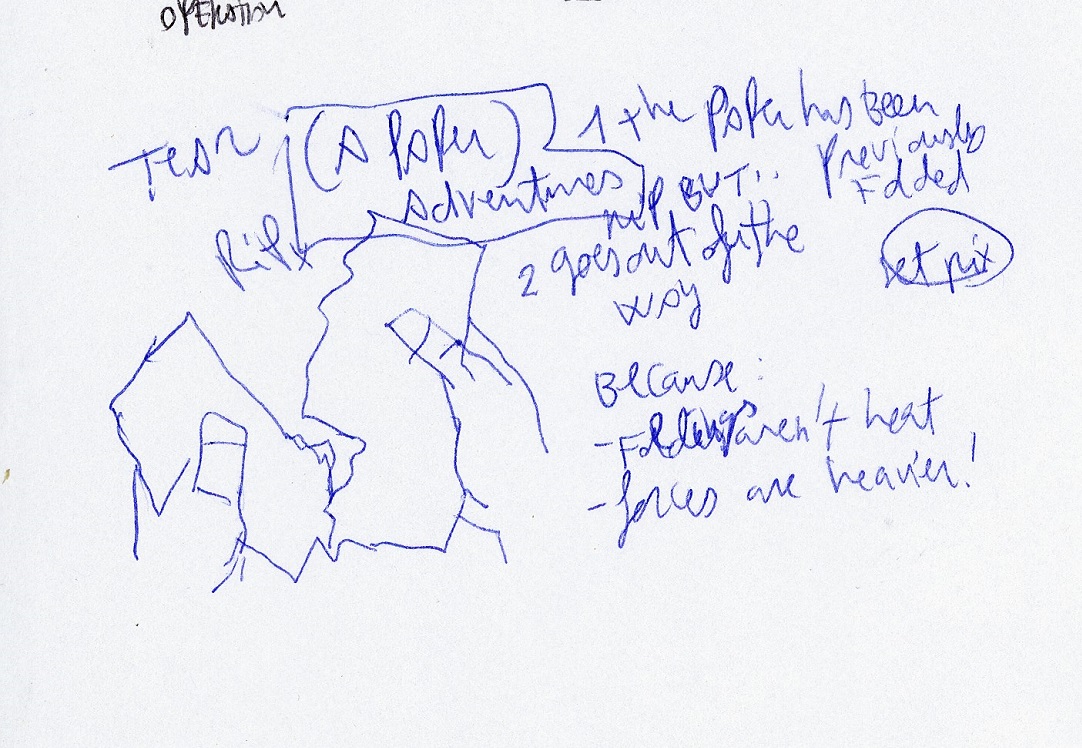 OPERATION
TEAR
(A PAPER)
Adventures
RiP
1 the paper has been
previously
Folded
BUT..
2 goes out of the
way
Because:
- Foldings aren't heat
- forces are heavier!